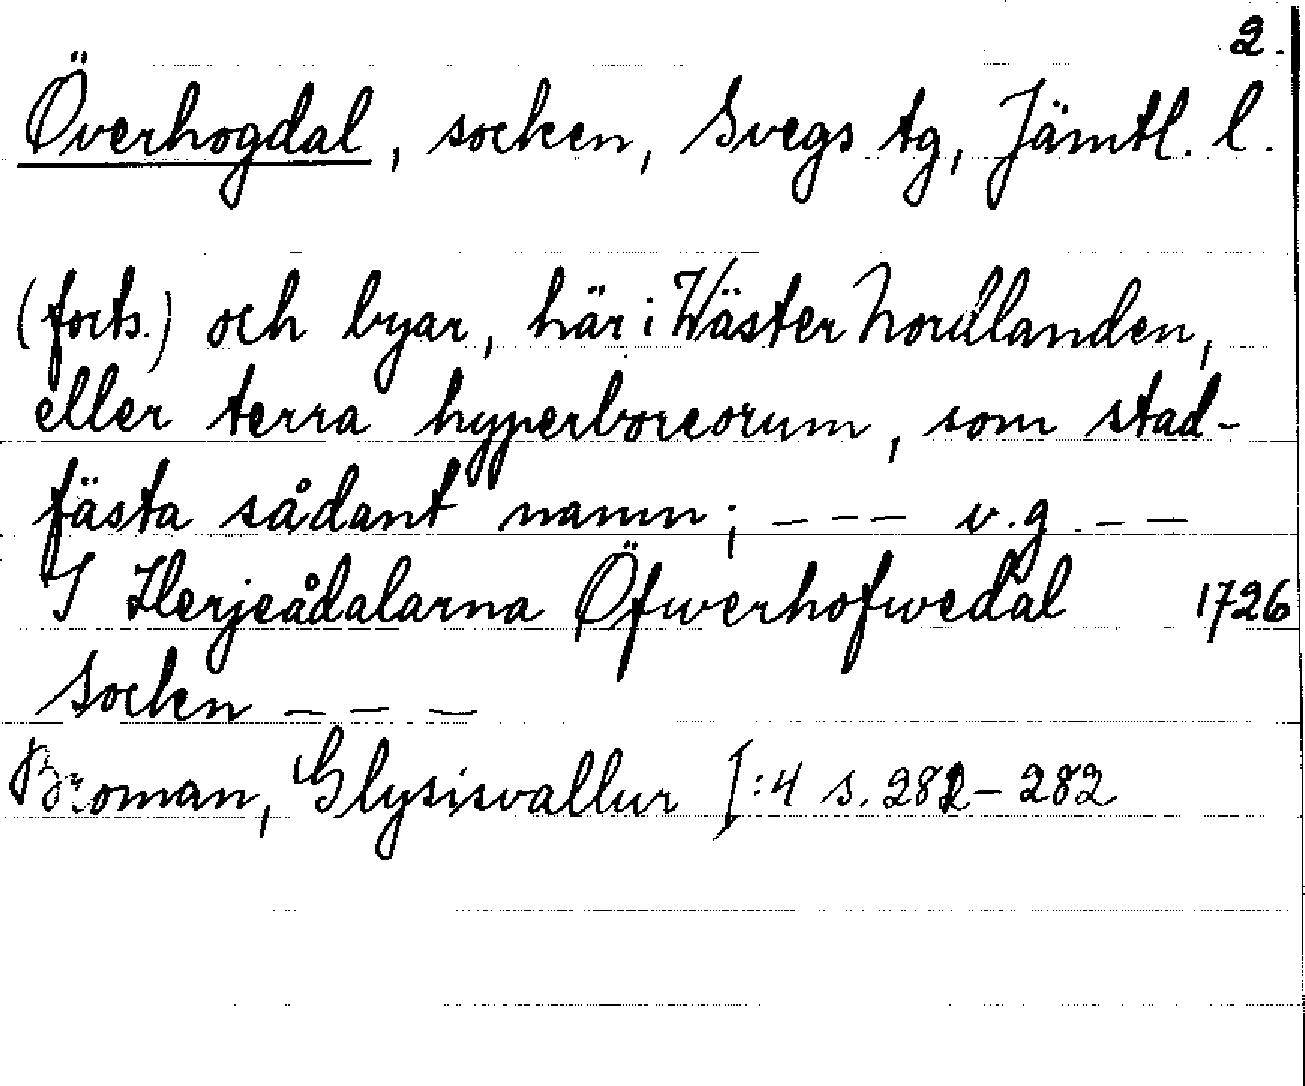 2.
Överhogdal, socken, Svegs tg, Jämtl. l.
(forts.) och byar, här i Wäster Nordlanden,
eller terra hyperboreorum, som stad-
fästa sådant namn; - - - v.g. - -
I Herjeådalarna Öfwerhofwedal 1726
Socken - - -
Broman, Glysisvallur I:4 s. 282-282